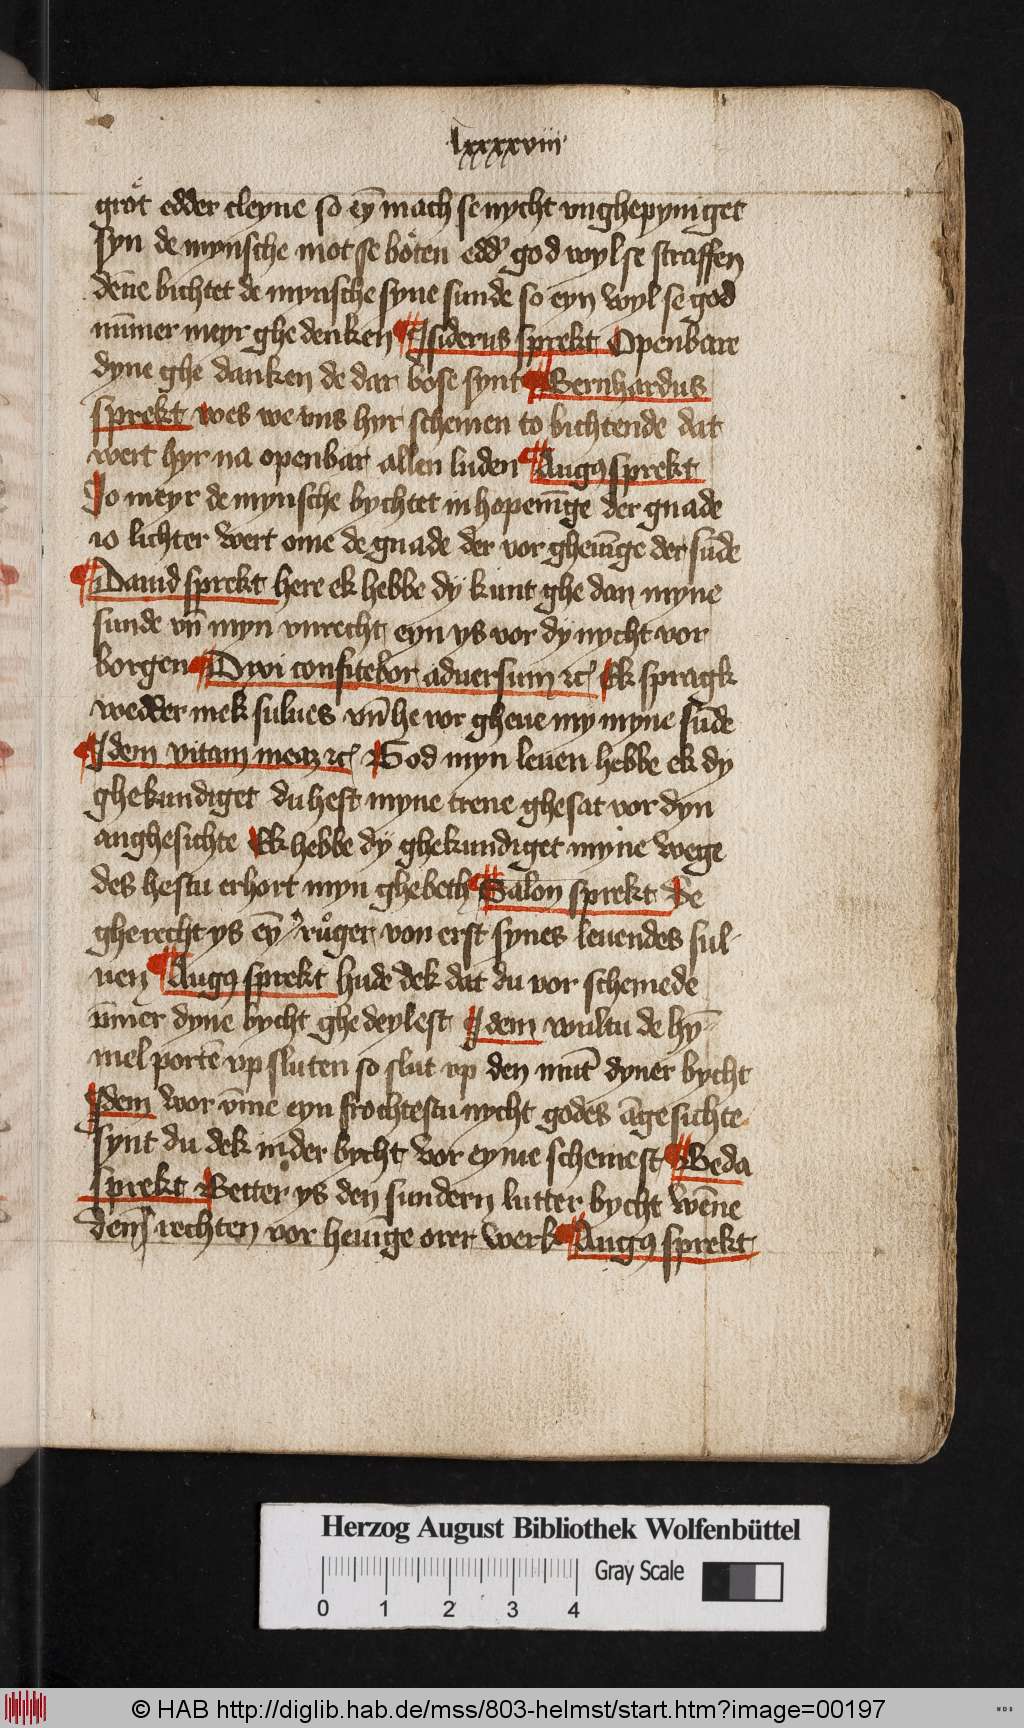 lxxxxviii
grot edder cleyne so eȳ mach se nycht vnghepyniget
syn de mynsche mot se boten edd' god wyl se straffen
dēne bichtet de mynsche syne sunde so eyn wyl se god
nūmer meyr ghe denken Isiderus sprekt Openbare
dyne ghe danken de dar bose synt Bernhardus
sprekt wes we vns hyr schemen to bichtende dat
wert hyr na openbar allen luden Augꝯ sprekt
Jo meyr de mynsche bychtet in hopenīge der gnade
io lichter wert ome de gnade der vor gheuīge der sūde
Dauid sprekt here ek hebbe dy kunt ghe dan myne
sunde vn̄ myn vnrecht eyn ys vor dy nycht vor
borgen Dixi confitebor aduersum ⁊c̄ Ek spragk
wedder mek sulues vn̄ he vor gheue my myne sūde
Idem vitam meaz ⁊c̄ God myn leuen hebbe ek dy
ghekundiget du hest myne trene ghesat vor dyn
anghesichte Ek hebbe dy ghekundiget myne wege
des hestu erhort myn ghebeth Salon sprekt De
gherecht ys eȳ růger von erst synes leuendes sul-
uen Augꝯ sprekt hude dek dat du vor schemede
vīmer dyne bycht ghe deylest Idem wultu de hȳ-
mel portē vp sluten so slut vp den mūt dyner bycht
Idem wor vīme eyn frochtestu nycht godes āgesichte
synt du dek in der bycht vor eyme schemest Beda
sprekt Better ys den sundern lutter bycht wēne
den rechten vor heuīge orer werk Augꝯ sprekt
Herzog August Bibliothek Wolfenbüttel
Gray Scale
0 1 2 3 4
© HAB http://diglib.hab.de/mss/803-helmst/start.htm?image=00197